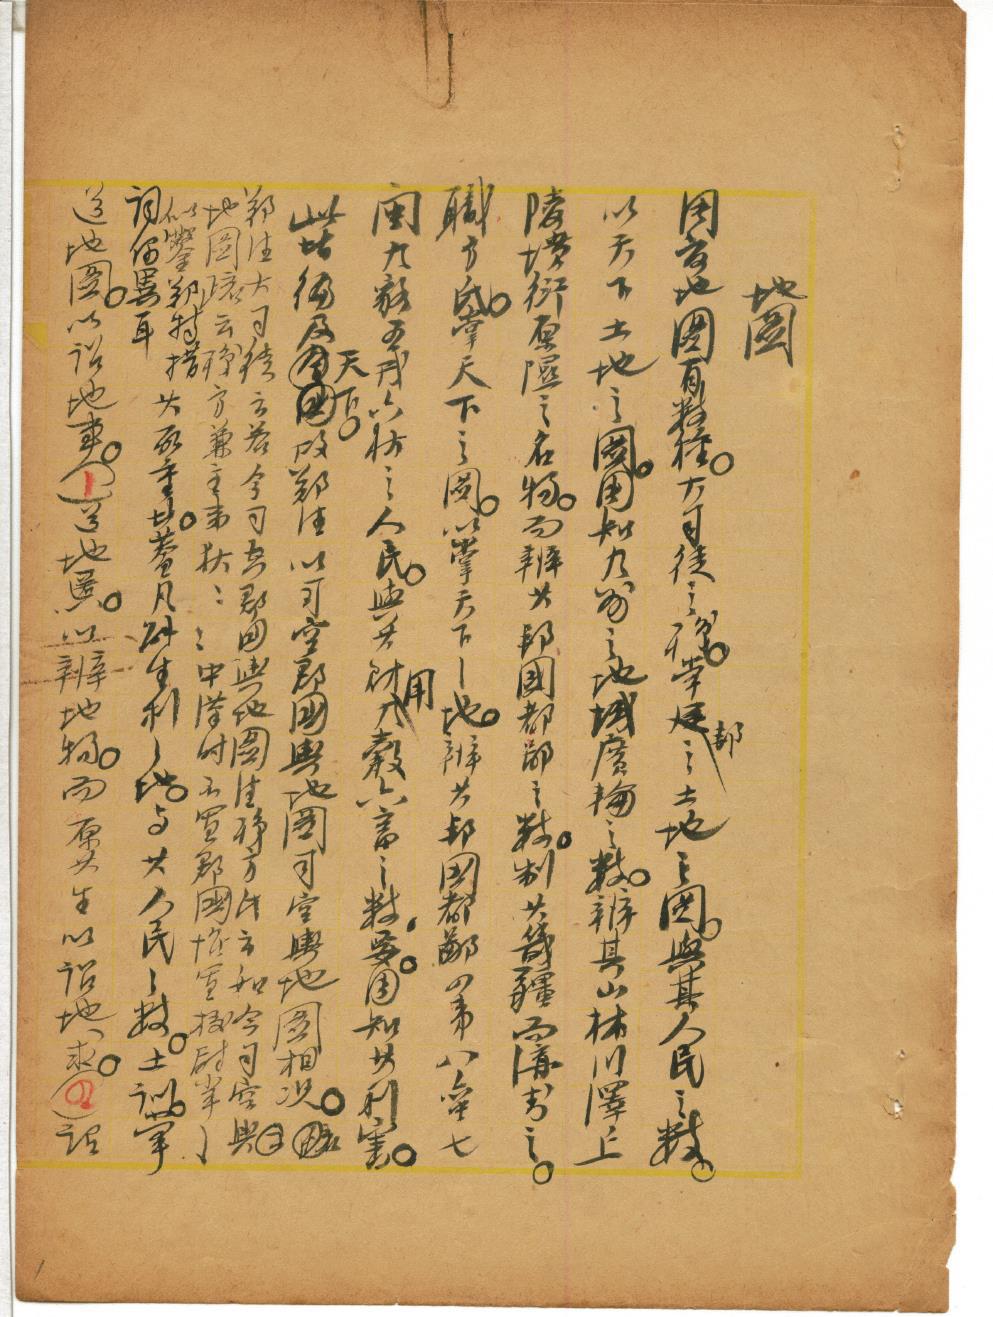 地圖
周官地圖有數種。大司徒之職。掌建邦之土地之圖。與其人民之數。
以天下土地之圖。周知九州之地域廣輪之數。辨其山林川澤丘
陵墳衍原隰之名物。而辨其邦國都鄙之數。制其畿疆而溝封之。
職方氏。掌天下之圖。以掌天下之地。辨其邦國都鄙四夷八蠻七
閩九貉五戎六狄之人民。與其財用九穀六畜之數要。周知其利害。
此皆徧及天下。故鄭注以司空郡國輿地圖司空輿地圖相況。
鄭注大司徒云若今司空郡國輿地圖注職方氏云如今司空輿
地圖 云職方兼主 中漢時不置郡國 置校尉掌之
似鑿鄭特措
詞偶異耳 其所重 蓋凡 生利之地。与其人民之數。土訓。掌
道地圖。以詔地事。道地慝。以辨地物。而原其生以詔地求。詔